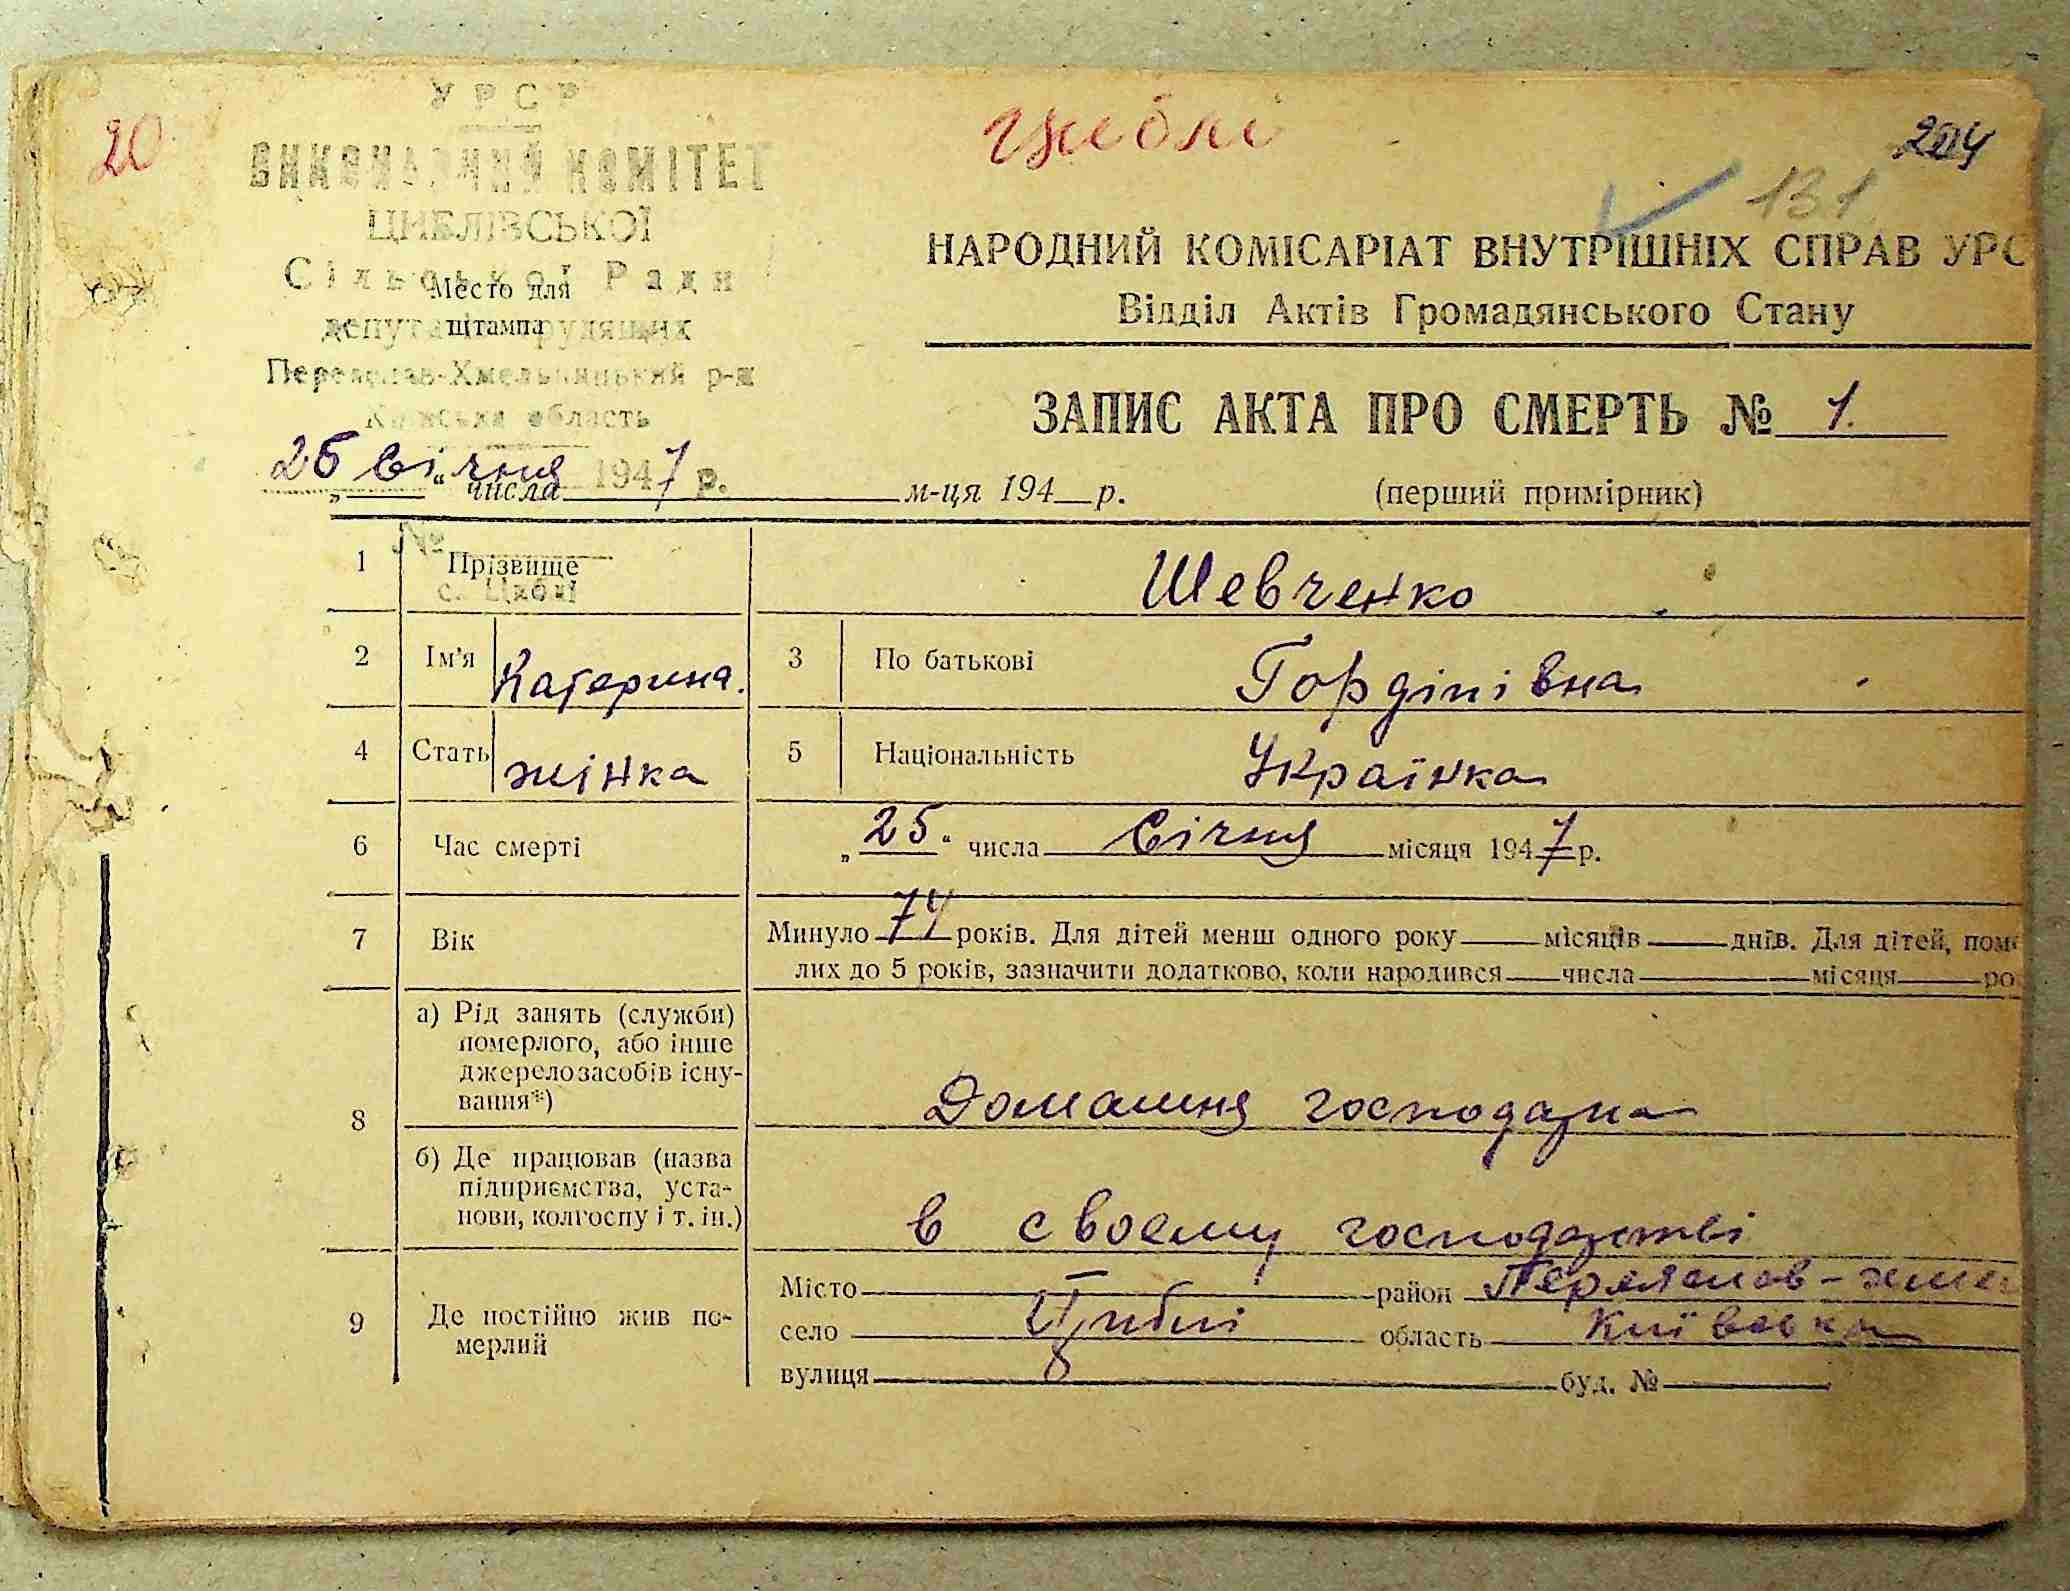 20
Циблі
204
131
УРСР
ВИКОНАВЧИЙ КОМІТЕТ
ЦИБЛІВСЬКОЇ
Сільської Ради
депутатів трудящих
Переяслав-Хмельницький р-н
Київська область
Место для
штампа
26 Січня 1947 р.
№
с. Циблі
НАРОДНИЙ КОМІСАРІАТ ВНУТРІШНІХ СПРАВ УРС
Відділ Актів Громадянського Стану
ЗАПИС АКТА ПРО СМЕРТЬ № 1.
„ “ числа м-ця 194 р. (перший примірник)
1 Прізвище Шевченко
2 Ім'я Катерина. 3 По батькові Гордіпівна
4 Стать жінка 5 Національність Українка
6 Час смерті „25“ числа Січня місяця 1947 р.
7 Вік Минуло 74 років. Для дітей менш одного року місяців днів. Для дітей, пом
лих до 5 років, зазначити додатково, коли народився числа місяця ро
8 а) Рід занять (служби)
померлого, або інше
джерело засобів існу-
вання*)
Домашня господарка
б) Де працював (назва
підприємства, уста-
нови, колгоспу і т. ін.)
в своєму господарстві
9 Де постійно жив по-
мерлий
Місто район Переяслав-хме
село Циблі область Київська
вулиця буд. №